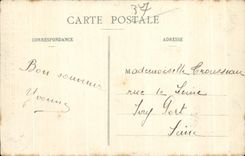 37
CARTE POSTALE
CORRESPONDANCE
ADRESSE
Bon souvenir
Yvonne
Mademoiselle Trousseau
rue de Seine
Port
Seine